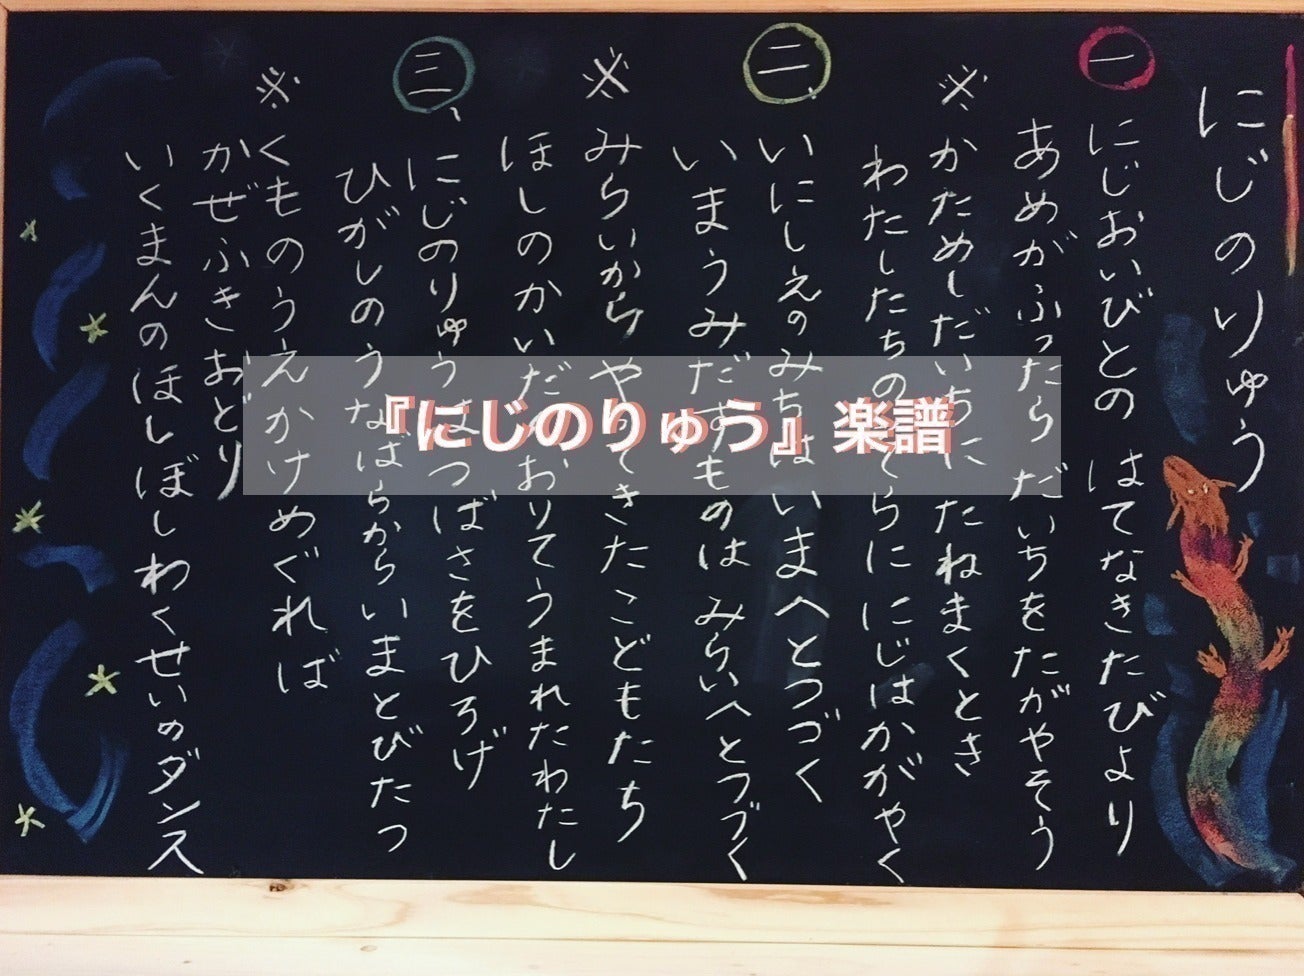 にじのりゅう
一
にじおいびとの はてなきたびより
あめがふったら だいちをたがやそう
※ かためしだいちに たねまくとき
わたしたちの てらに にじはかがやく
二、
いにしえのみちは いまへとつづく
いまうみだすものは みらいへとつづく
※ みらいから やってきたこどもたち
ほしのかいだ おりてうまれたわたし
三、
にじのりゅうは つばさをひろげ
ひがしのうなばらから いまとびたつ
※ くものうえかけめぐれば
かぜふきおどり
いくまんのほしぼしわくせいのダンス
『にじのりゅう』楽譜